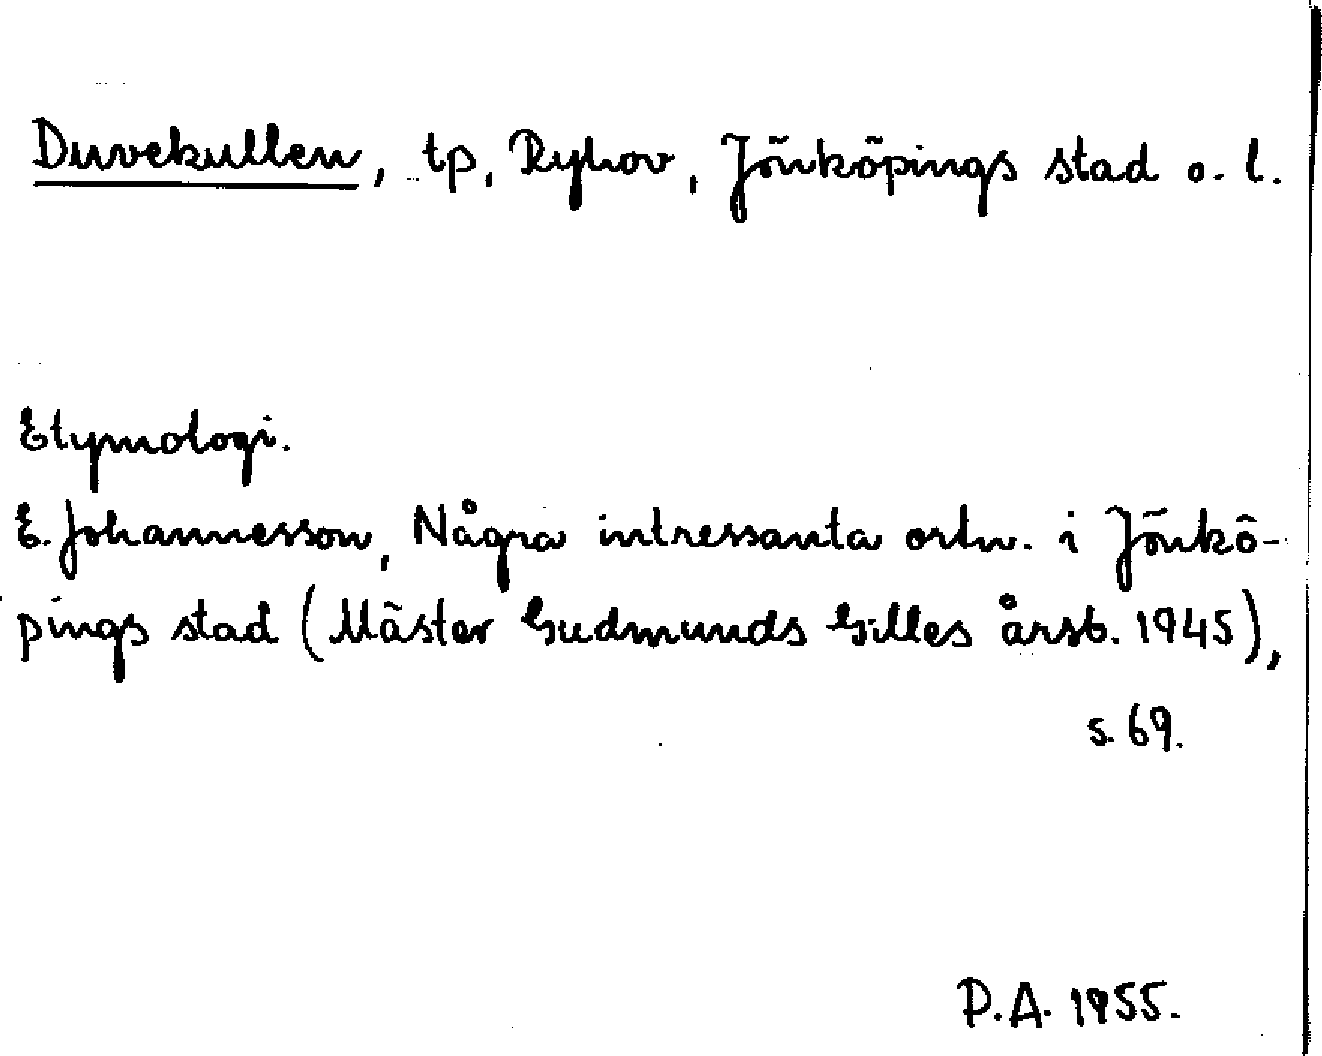 Duvekullen, tp, Ryhov, Jönköpings stad o. l.
Etymologi.
E. Johannesson, Några intressanta ortn. i Jönkö-
pings stad (Mäster Gudmunds Gilles årsb. 1945),
s. 69.
P.A. 1955.